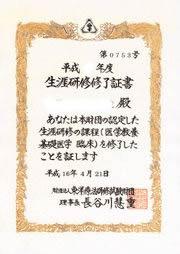 第0753号
平成　年度
生涯研修修了証書
殿
あなたは本財団の認定した
生涯研修の課程（医学教養
基礎医学 臨床）を修了した
ことを証します
平成16年4月21日
財団法人東洋療法研修試験財団
理事長 長谷川慧重